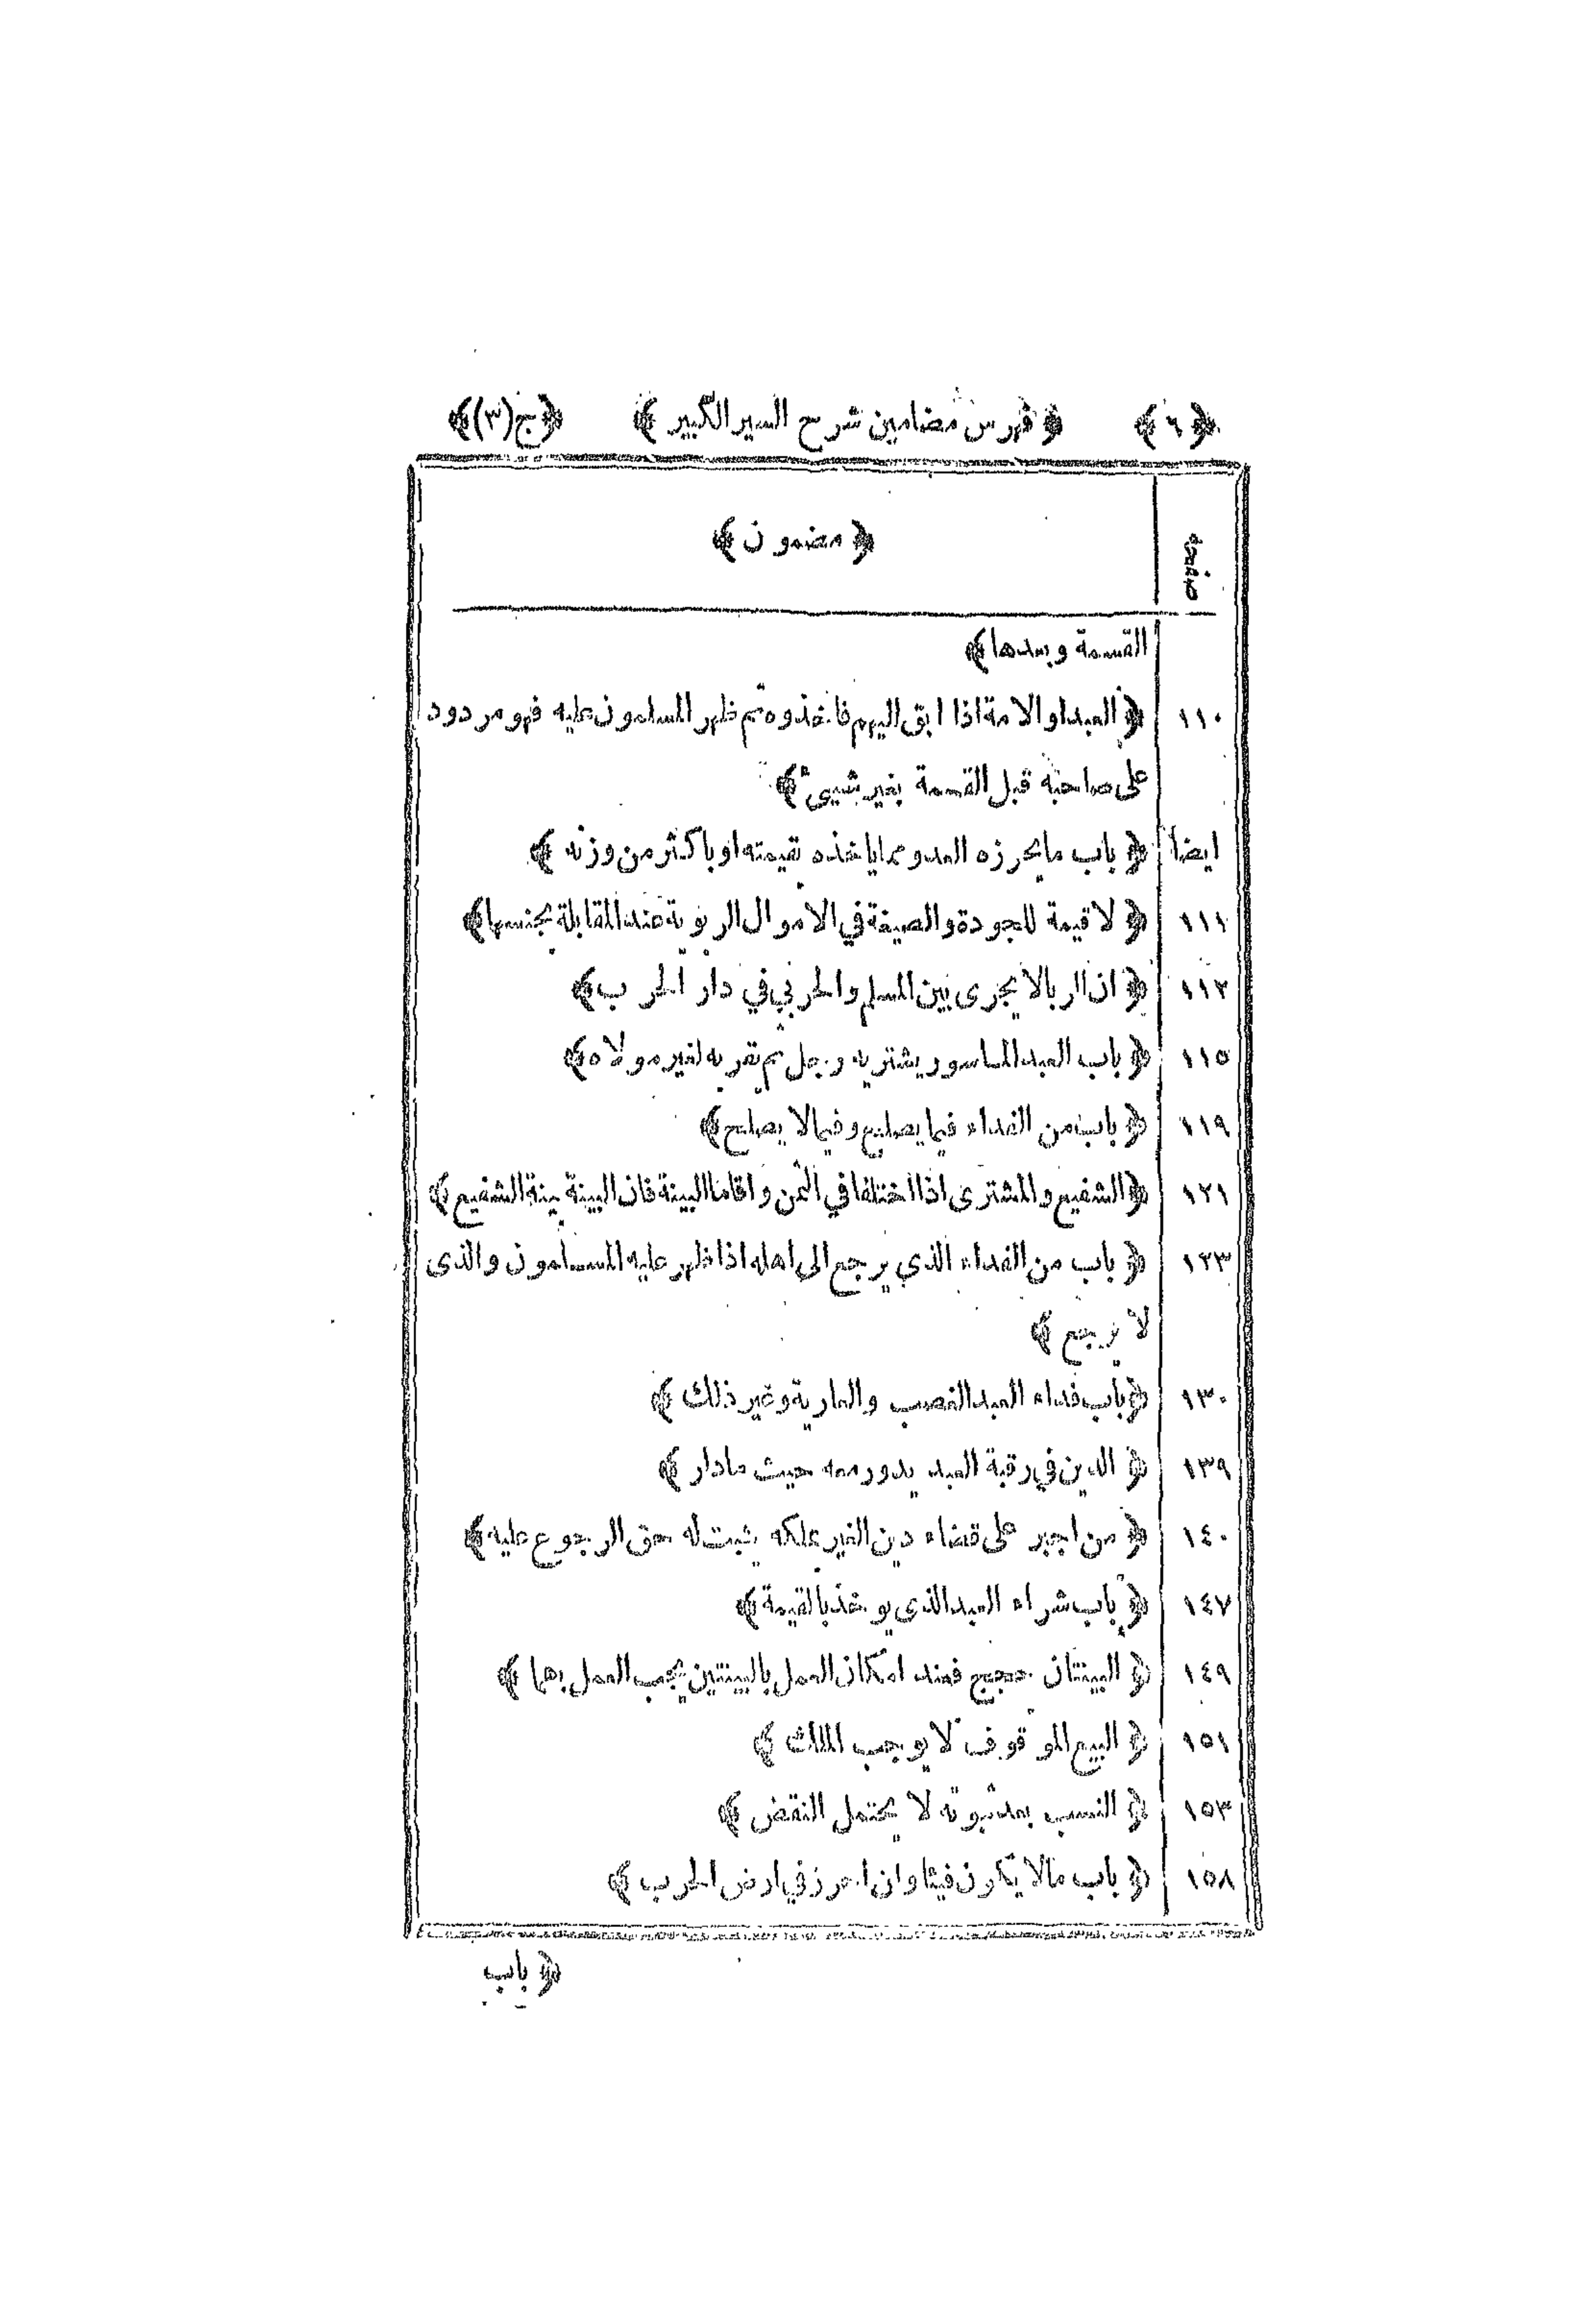 ﴿ ٦ ﴾ ﴿ فهرس مضامين شرح السير الكبير ﴾ ﴿ج(٣)﴾
صفحة ﴿ مضمون ﴾
القسمة وبعدها﴾
١١٠ ﴿ العبد او الامة اذا ابق اليهم فاخذوه ثم ظهر المسلمون عليه فهو مردود
على صاحبه قبل القسمة بغير شيىء﴾
ايضاً ﴿ باب ما يحرزه العدو مما ياخذه بقيمته او باكثر من وزنه ﴾
١١١ ﴿ لا قيمة للجودة والصيغة في الاموال الربوية عند المقابلة بجنسها﴾
١١٢ ﴿ ان الربا لا يجرى بين المسلم والحربي في دار الحرب﴾
١١٥ ﴿ باب العبد الماسور يشتريه رجل ثم يقر به لغير مولاه﴾
١١٩ ﴿ باب من الفداء فيما يصلح وفيما لا يصلح﴾
١٢١ ﴿الشفيع والمشترى اذا اختلفا في الثمن واقاما البينة فان البينة بينة الشفيع﴾
١٢٣ ﴿ باب من الفداء الذي يرجع الى اهله اذا ظهر عليه المسلمون والذى
لا يرجع ﴾
١٣٠ ﴿باب فداء العبد الغصب والعارية وغير ذلك ﴾
١٣٩ ﴿ الدين في رقبة العبد يدور معه حيث ما دار ﴾
١٤٠ ﴿ من اجبر على قضاء دين الغير بملكه يثبت له حق الرجوع عليه﴾
١٤٧ ﴿ باب شراء العبد الذى يوخذ بالقيمة﴾
١٤٩ ﴿ البينتان حجج فعند امكان العمل بالبينتين يجب العمل بهما ﴾
١٥١ ﴿ البيع الموقوف لا يوجب الملك ﴾
١٥٣ ﴿ النسب بعد ثبوته لا يحتمل النقض ﴾
١٥٨ ﴿ باب مالا يكون فيئا وان احرز في ارض الحرب ﴾
﴿ باب